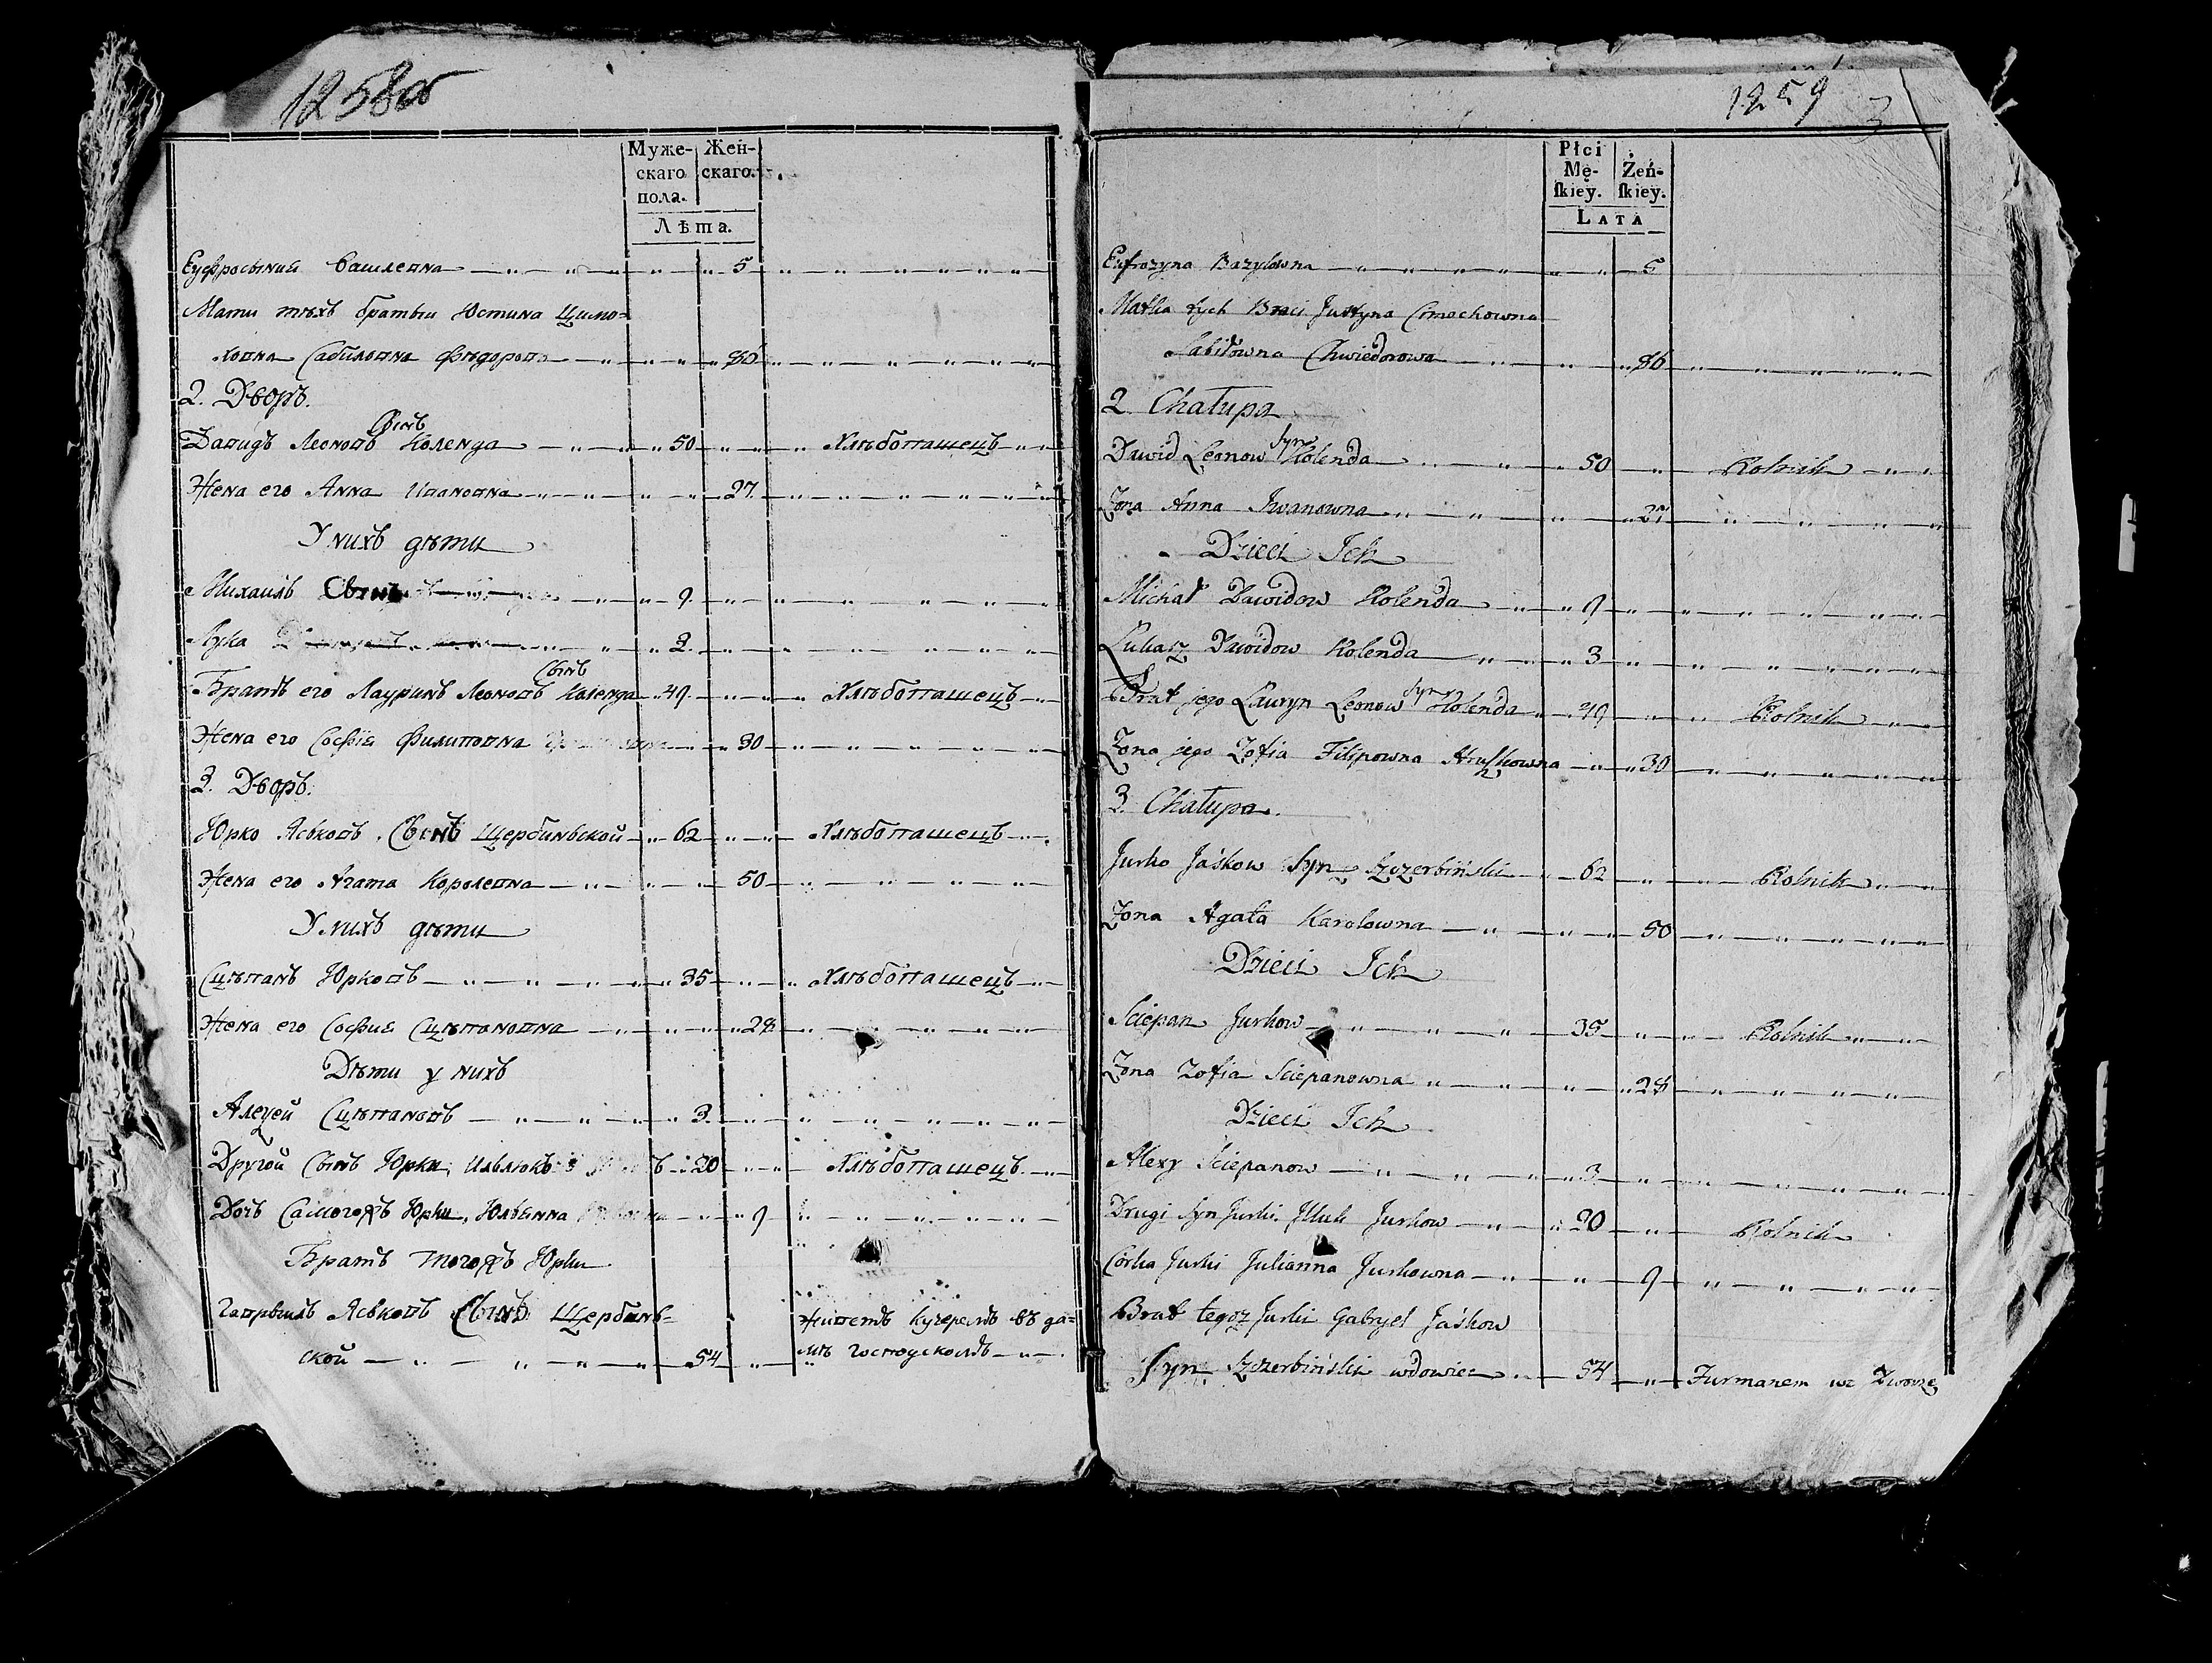 1258об
Муже- Жен-
скаго скаго.
пола.
Лѣта.
Еуфросыния Башлевна 5
Мати тѣхъ братьи Юстина Цимо=
ховна Сабиловна Фѣдорова 86
2. Дворъ.
Сынъ
Давидъ Леоновъ Коленда 50 Хлѣбопашецъ
Жена его Анна Ивановна 27
У нихъ дѣти
Михаилъ Сынъ 9
Лука 3
Сынъ
Братъ его Лауринъ Леоновъ Коленда 49 Хлѣбопашецъ
Жена его София Филиповна 30
3. Дворъ.
Юрко Яськовъ Сынъ Щербиньской 62 Хлѣбопашецъ
Жена его Агата Королевна 50
У нихъ дѣти
Сцѣпанъ Юрковъ 35 Хлѣбопашецъ
Жена его София Сцѣпановна 28
Дѣти у нихъ
Алецей Сцѣпановъ 3
Другой Сынъ Юрки, Ильлюкъ 20 Хлѣбопашецъ
Дочъ Самогожъ Юрки, Юльянна 9
Братъ тогожъ Юрки
Гаврыилъ Яськовъ Сынъ Щербинь= Живетъ кучеремъ въ да=
ской 54 мѣ господскомъ
1259
3
Płci
Mę- Żeń-
ſkiey. ſkiey.
LATA
Eufrozyna Bazylowna 5
Matka tych Braci Justyna Cimochowna
Sabiłowna Chwiedorowa 86
2 Chałupa
Syn
Dawid Leonow Kolenda 50 Rolnik
Żona Anna Jwanowna 27
Dzieci Ich
Michał Dawidow Kolenda 9
Łukasz Dawidow Kolenda 3
Syn
Brat jego Lauryn Leonow Kolenda 49 Rolnik
Żona jego Zofia Filipowna 30
3. Chałupa.
Jurko Jaśkow Syn Szczerbiński 62 Rolnik
Żona Agata Karolowna 50
Dzieci Ich
Sciepan Jurkow 35 Rolnik
Żona Zofia Sciepanowna 28
Dzieci Ich
Alexy Sciepanow 3
Drugi Syn Jurki Jlluk Jurkow 20 Rolnik
Corka Jurki Julianna Jurkowna 9
Brat tegoz Jurki Gabryel Jaśkow
Syn Szczerbiński wdowiec 54 Furmanem we Dworze